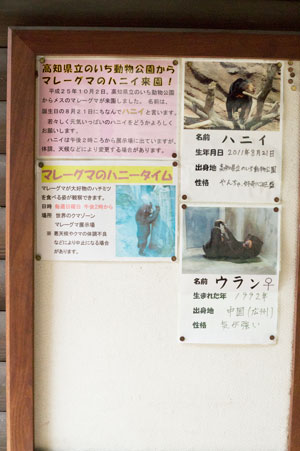 高知県立のいち動物公園から
マレーグマのハニイ来園！
平成25年10月2日、高知県立のいち動物公園
からメスのマレーグマが来園しました。名前は、
誕生日の8月21日にちなんでハニイと言います。
若々しく元気いっぱいのハニイをどうかよろしく
お願いします。
ハニイは午後2時ころから展示場に出ていますが、
体調、天候などにより変更する場合があります。
マレーグマのハニータイム
マレーグマが大好物のハチミツ
を食べる姿が観察できます。
日時 毎週日曜日 午後2時から
場所 世界のクマゾーン
マレーグマ展示場
※ 悪天候やクマの体調不良
などにより中止になる場合
があります。
名前 ハニイ
生年月日 2011年8月21日
出身地 高知県立のいち動物公園
性格 やんちゃ、好奇心旺盛
名前 ウラン♀
生まれた年 1992年
出身地 中国(広州)
性格 気が強い